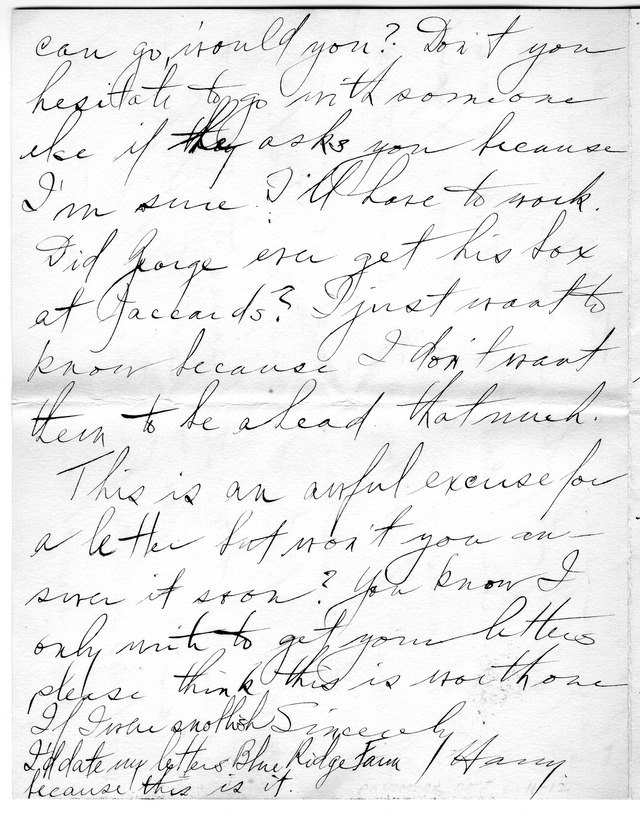 can go, would you? Don't you
hesitate to go with someone
else if they asks you because
I'm sure I'll have to work.
Did George ever get his box
at Jaccards? I just want to
know because I don't want
them to be ahead that much.
This is an awful excuse for
a letter but won't you an-
swer it soon? You know I
only write to get your letters
please think this is worth one
Sincerely
Harry
If I were snobbish
I'd date my letters Blue Ridge Farm
because this is it.